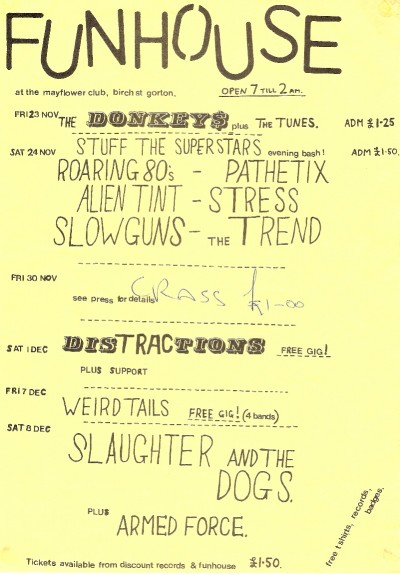 FUNHOUSE
at the mayflower club, birch st gorton. OPEN 7 TILL 2 AM.
FRI 23 NOV THE DONKEY$ plus THE TUNES. ADM £1·25
SAT 24 NOV STUFF THE SUPERSTARS evening bash! ADM £1·50.
ROARING 80's - PATHETIX
ALIEN TINT - STRESS
SLOWGUNS - THE TREND
FRI 30 NOV
see press for details CRASS £1-00
SAT 1 DEC DISTRACTIONS FREE GIG!
PLUS SUPPORT
FRI 7 DEC
WEIRD TAILS FREE GIG! (4 bands)
SAT 8 DEC
SLAUGHTER AND THE
DOGS.
PLUS
ARMED FORCE.
free t shirts, records,
badges.
Tickets available from discount records & funhouse £1·50.